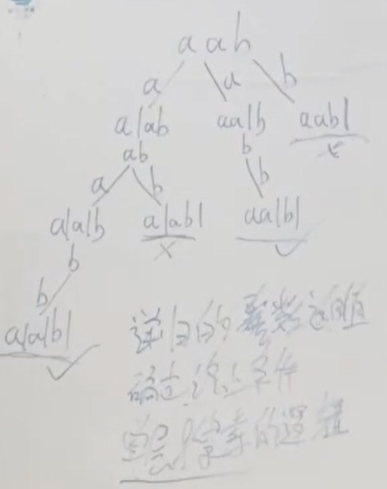 aab
a a b
a|ab aa|b aab|
ab b ×
a b b
a|a|b a|ab| aa|b|
b × ✓
b
a|a|b|
✓
递归的参数返回值
确定终止条件
单层搜索的逻辑